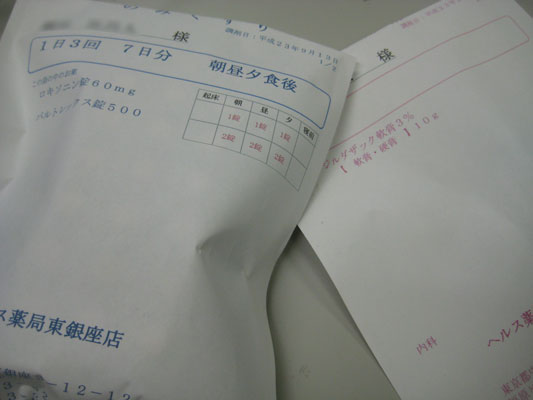 のみぐすり
様
調剤日:平成23年9月19日
1日3回 7日分 朝昼夕食後
この袋の中のお薬
ロキソニン錠60mg
バルトレックス錠500
起床 朝 昼 夕 寝前
1錠 1錠 1錠
2錠 2錠 2錠
ス薬局東銀座店
様
ルダザック軟膏3%
【 軟膏・硬膏 110g
内科
ヘルス薬
東京都